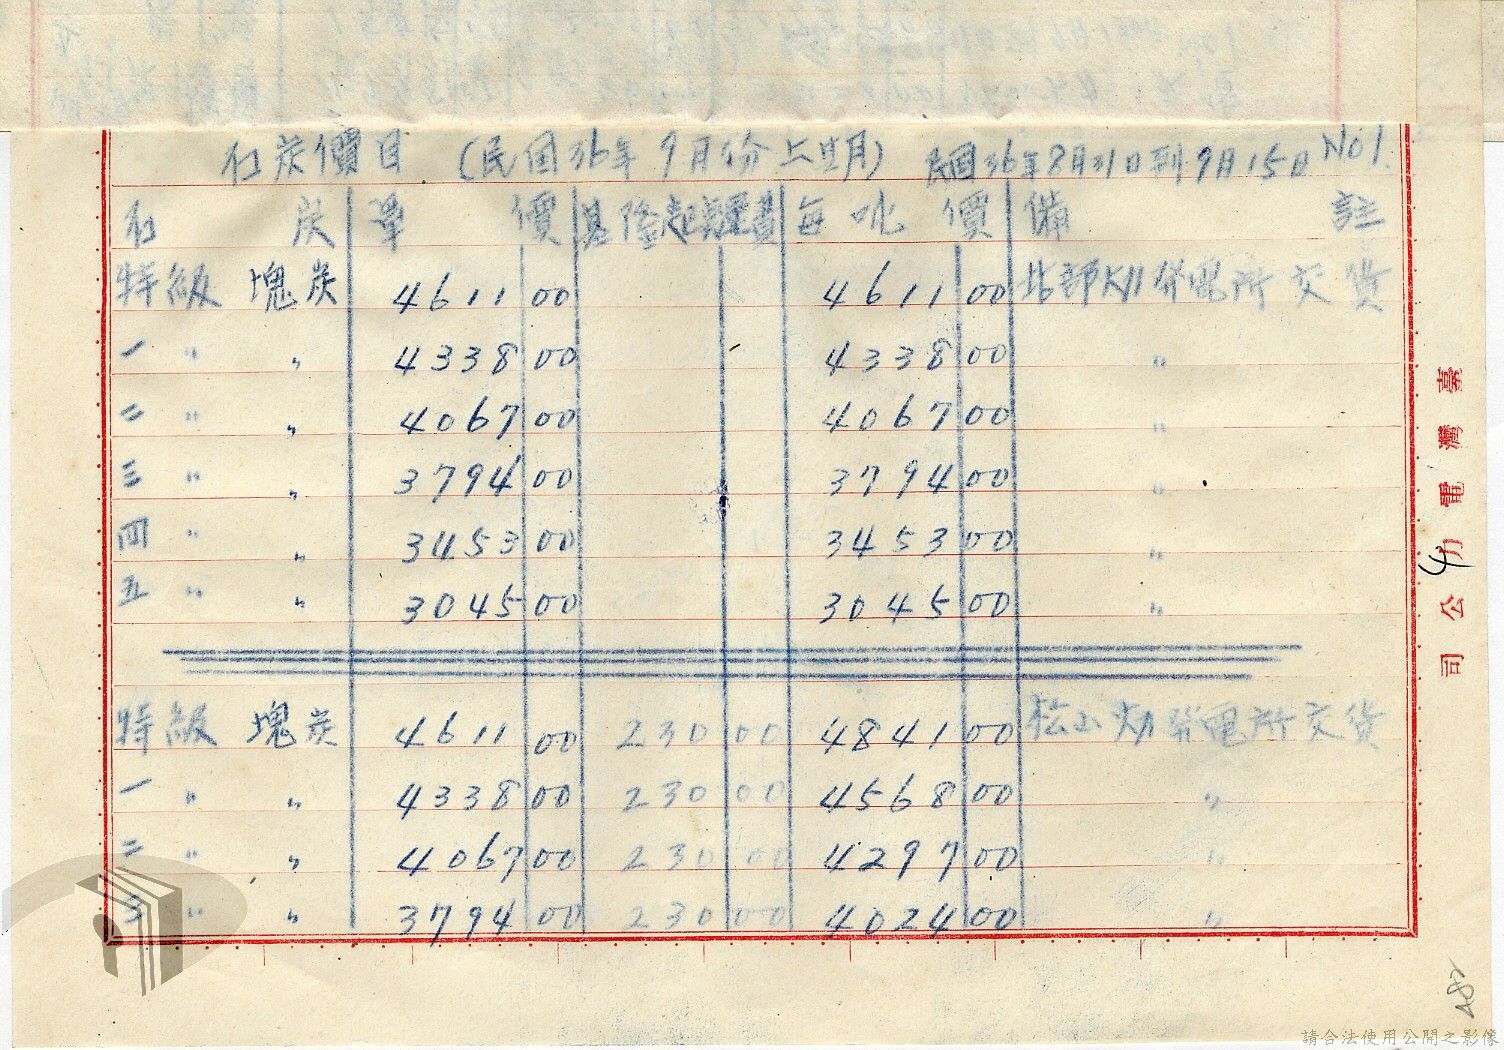 石炭價目 (民国36年9月份上半月) 民国36年8月31日到9月15日 No1.
石炭 單價 基隆起運費 每吨價 備註
特級 塊炭 4611 00 4611 00 北部火力發電所交貨
一 〃 〃 4338 00 4338 00 〃
二 〃 〃 4067 00 4067 00 〃
三 〃 〃 3794 00 3794 00 〃
四 〃 〃 3453 00 3453 00 〃
五 〃 〃 3045 00 3045 00 〃
特級 塊炭 4611 00 230 00 4841 00 松山火力發電所交貨
一 〃 〃 4338 00 230 00 4568 00 〃
二 〃 〃 4067 00 230 00 4297 00 〃
三 〃 〃 3794 00 230 00 4024 00 〃
臺灣電力公司
4
請合法使用公開之影像